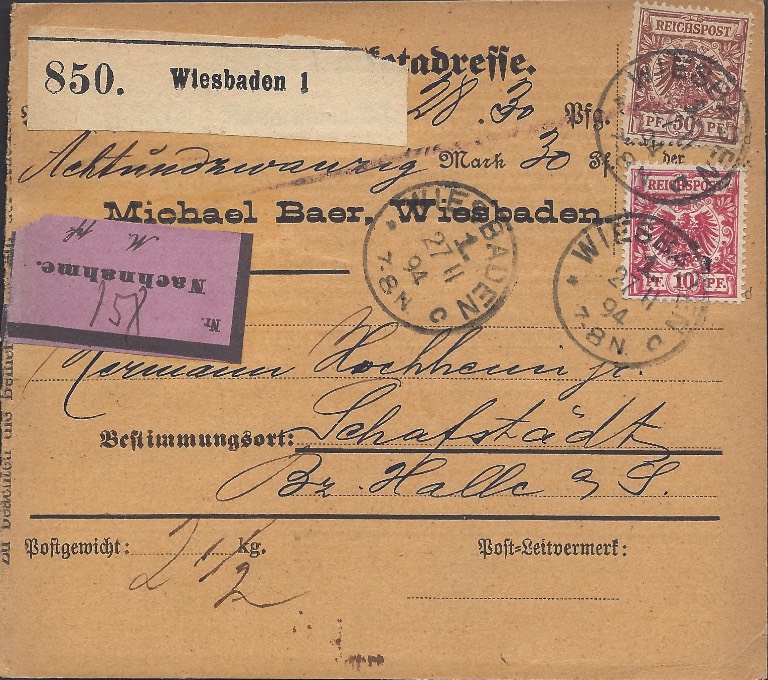 850. Wiesbaden 1
etadresse.
28.30 Pfg.
Achtundzwanzig Mark 30 Pf der
Michael Baer, Wiesbaden.
Nachnahme.
M. Pf
Nr. 158
Hermann Hochheim jr.
Bestimmungsort: Schafstädt
Bz. Halle a/S.
Postgewicht: 2 1/2 kg.
Post-Leitvermerk:
REICHSPOST
PF 50 PF
REICHSPOST
PF. 10 PF.
* WIESBADEN C
1
27 11
94
7-8N
* WIESBADEN C
1
27 11
94
7-8N
* WIESBADEN C
zu beachten die Bemer